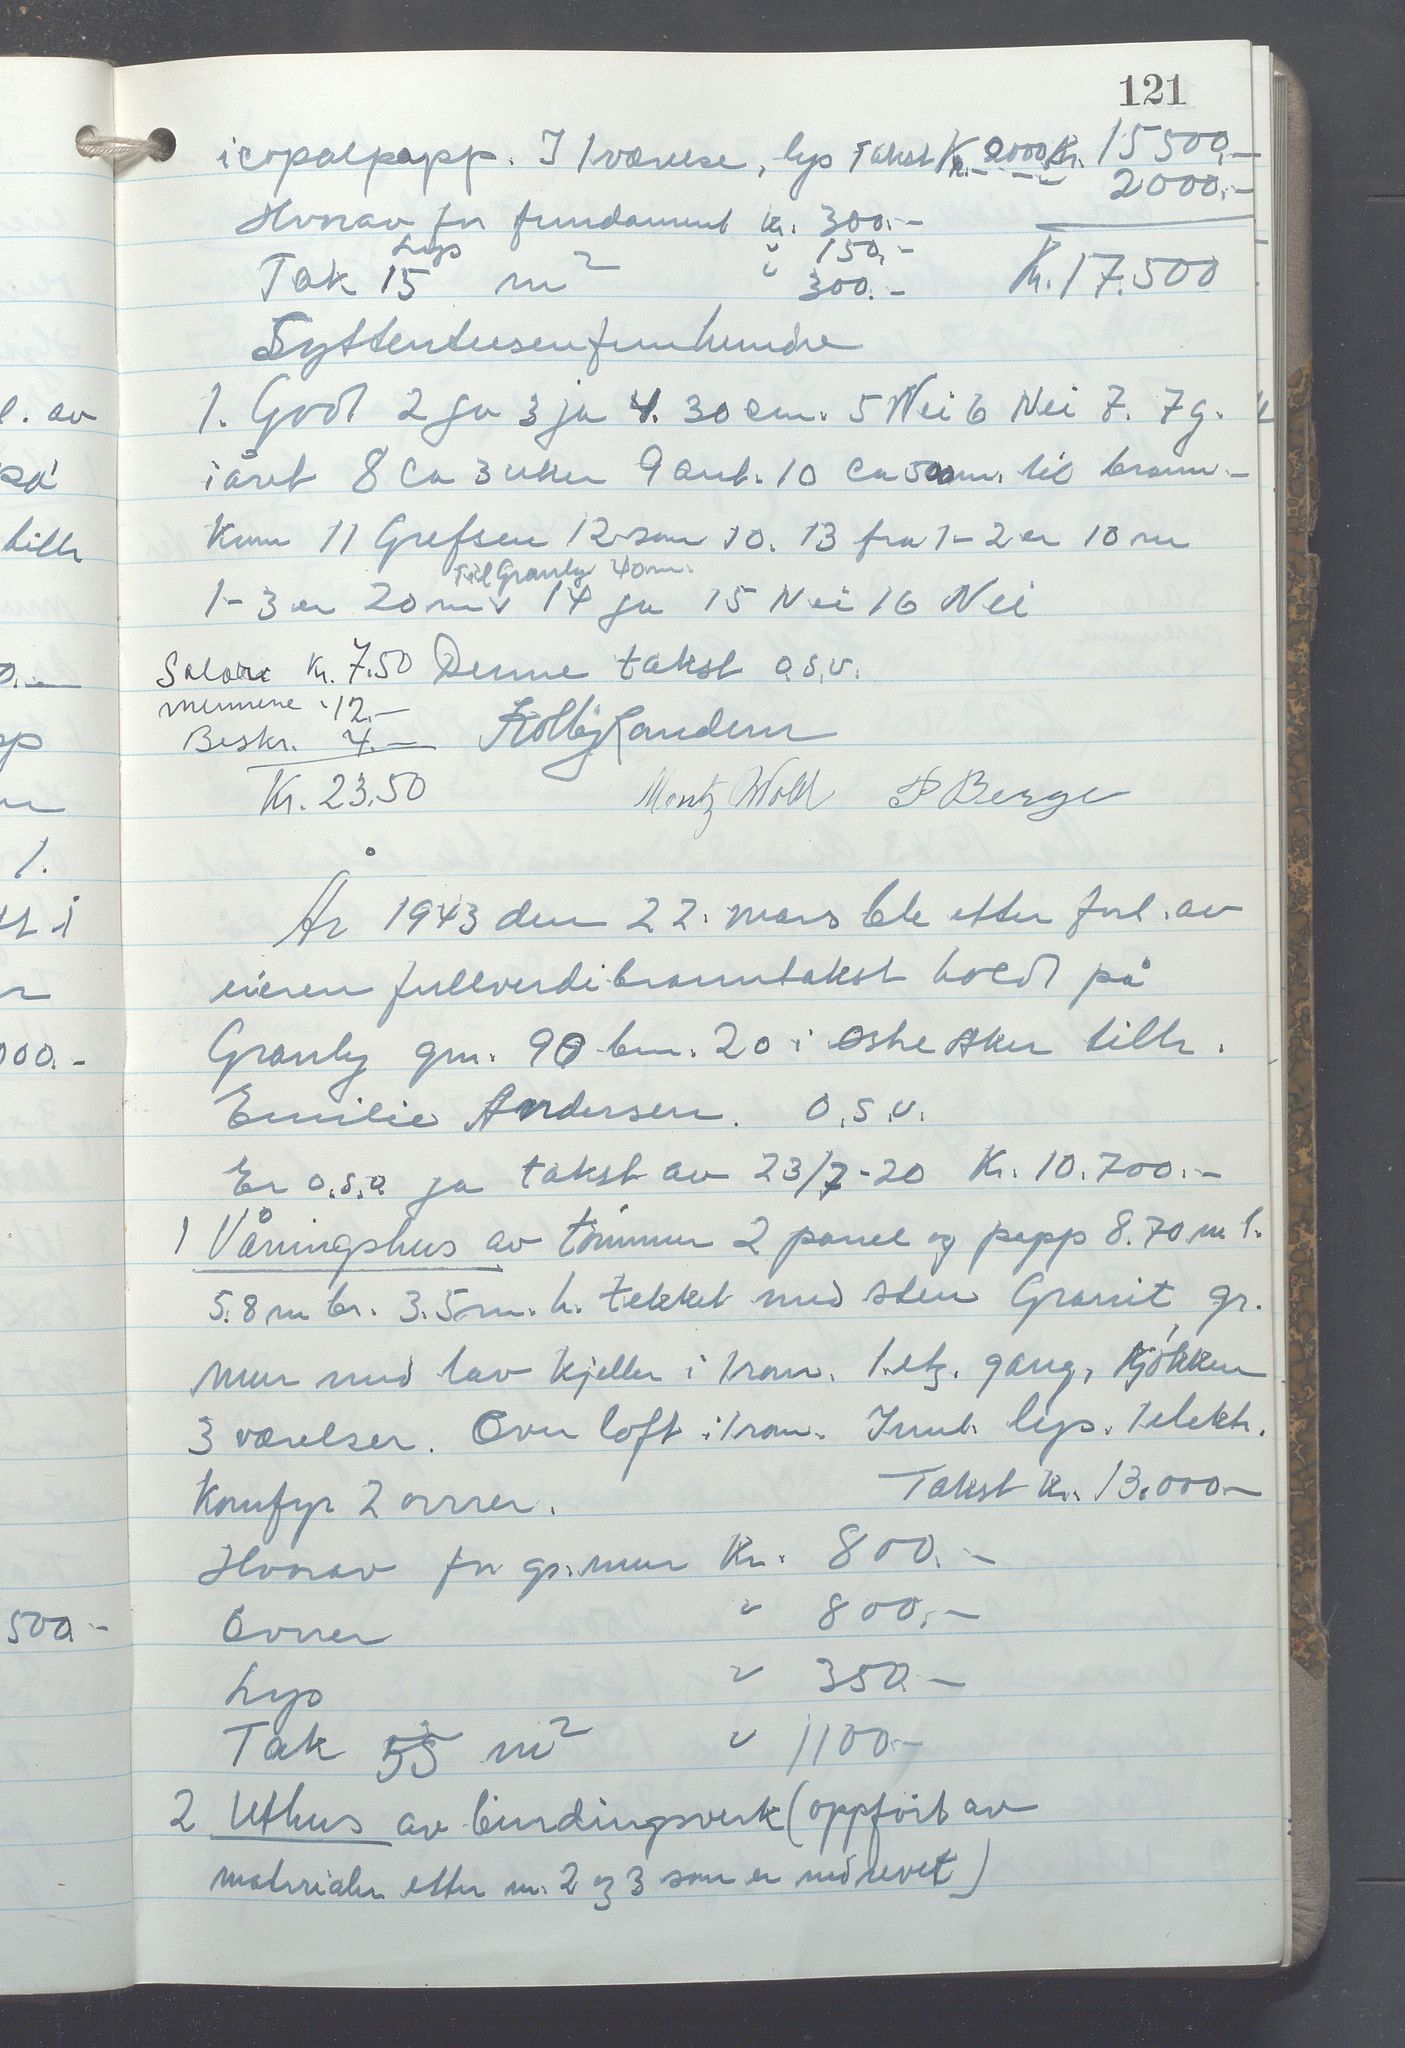 121
icopalpapp. I 1 værelse, lys Takst Kr. 2000 Kr. 15500,-
2000.-
Hvorav for fundament Kr. 300.-
Lys " 150.-
Tak 15 m² " 300.-
Kr. 17.500
Syttentusenfemhundre
1. God 2 ja 3 ja 4. 30 cm. 5 Nei 6 Nei 7. 7 g.
i året 8 Ca 3 uker 9 ant. 10 Ca 500 m. til brann-
kum 11 Grefsen 12 som 10. 13 fra 1-2 er 10 m
Til Granly 40 m.
1-3 er 20 m v 14 ja 15 Nei 16 Nei
Salær Kr. 7.50 Denne takst o.s.v.
mennene " 12.-
Beskr. 4.-
Kr. 23.50
Moritz Wold P Berge
År 1943 den 22. mars ble etter forl. av
eieren fullverdibranntakst holdt på
Granly gn. 90 bn. 20 i Østre Aker tilh.
Emilie Andersen. o.s.v.
Er o.s.a ja takst av 23/7-20 Kr. 10.700.-
1 Våningshus av tømmer 2 panel og papp 8.70 m l.
5.8 m br. 3.5 m. h. tekket med sten Granit gr.
mur med lav kjeller i 1 rom. 1. etg. gang, kjøkken
3 værelser. Over loft i 1 rom. Innl. lys. 1 elektr.
komfyr 2 ovner. Takst Kr. 13.000.-
Hvorav for gr. mur Kr. 800.-
Ovner " 800.-
Lys " 350.-
Tak 55 m² " 1100.-
2 Uthus av bindingsverk (oppført av
materialer etter nr. 2 og 3 som er nedrevet)
l. av
på
tilh
1.
tt i
000.-
500.-